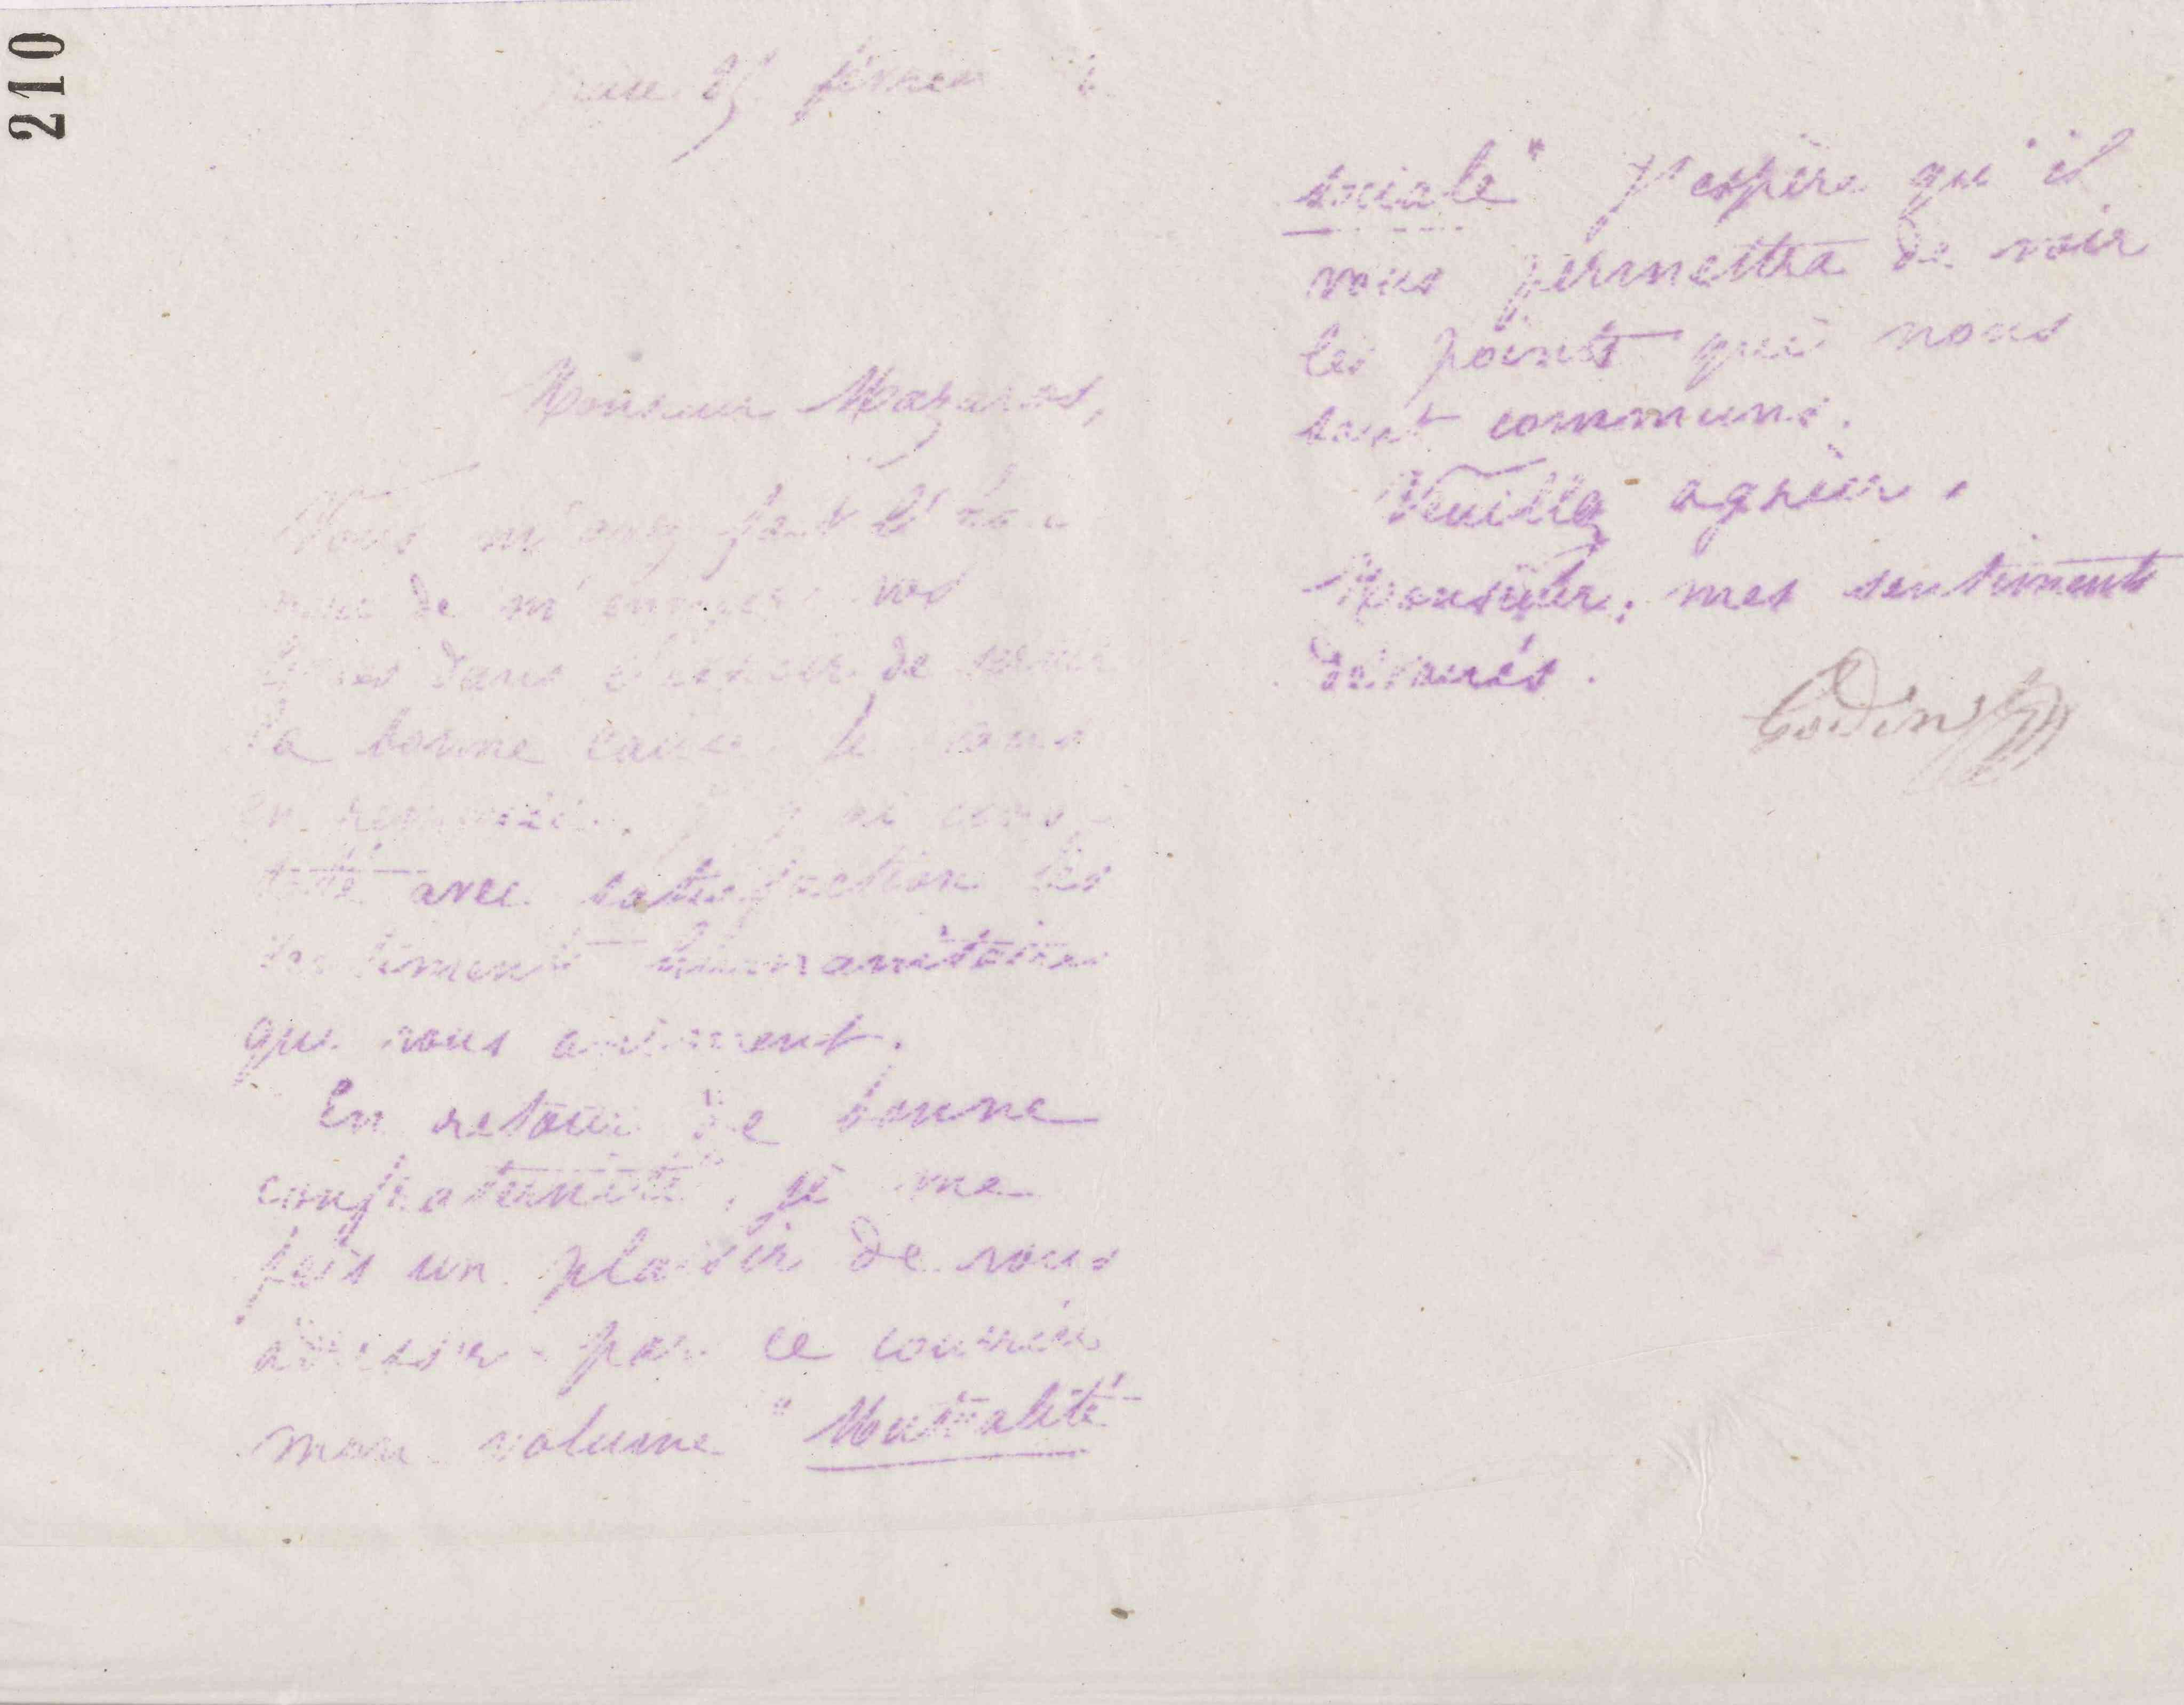 210
25 février
Monsieur Mazaros,
Vous m'avez fait l'hon-
neur de m'envoyer vos
livres dans l'espoir de servir
la bonne cause. Je vous
en remercie. J'y ai cons-
taté avec satisfaction les
sentiments humanitaires
qui vous animent.
En retour de bonne
confraternité, je me
fais un plaisir de vous
adresser par ce courrier
mon volume "Mutualité
sociale" J'espère qu'il
vous permettra de voir
les points qui nous
sont communs.
Veuillez agréer,
Monsieur, mes sentiments
dévoués.
Godin